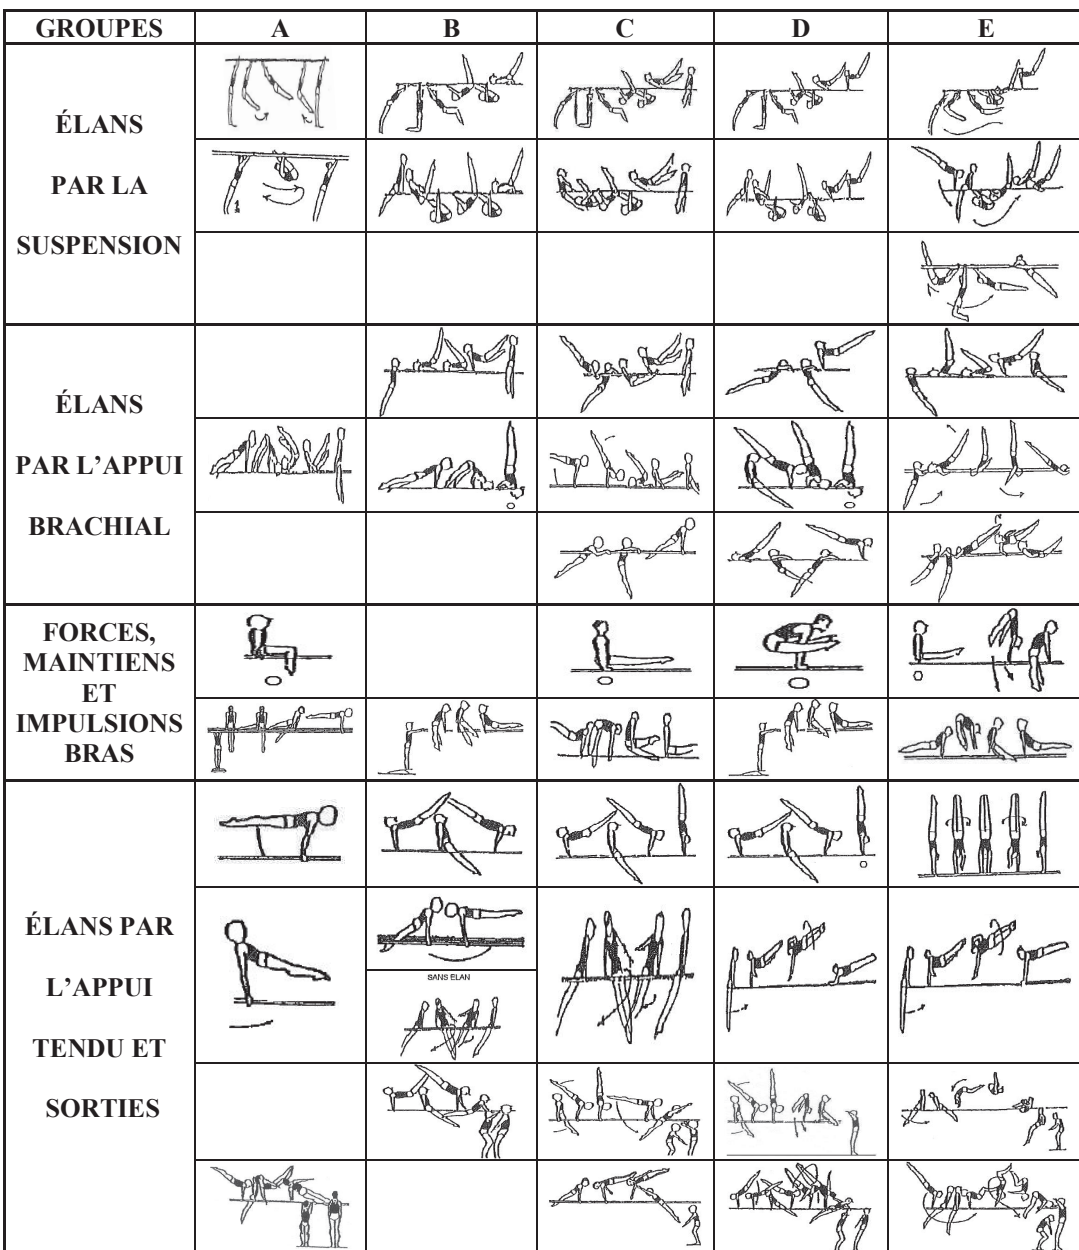 GROUPES A B C D E
ÉLANS
PAR LA
SUSPENSION
ÉLANS
PAR L’APPUI
BRACHIAL
FORCES,
MAINTIENS
ET
IMPULSIONS
BRAS
ÉLANS PAR
L’APPUI
TENDU ET
SORTIES
SANS ELAN